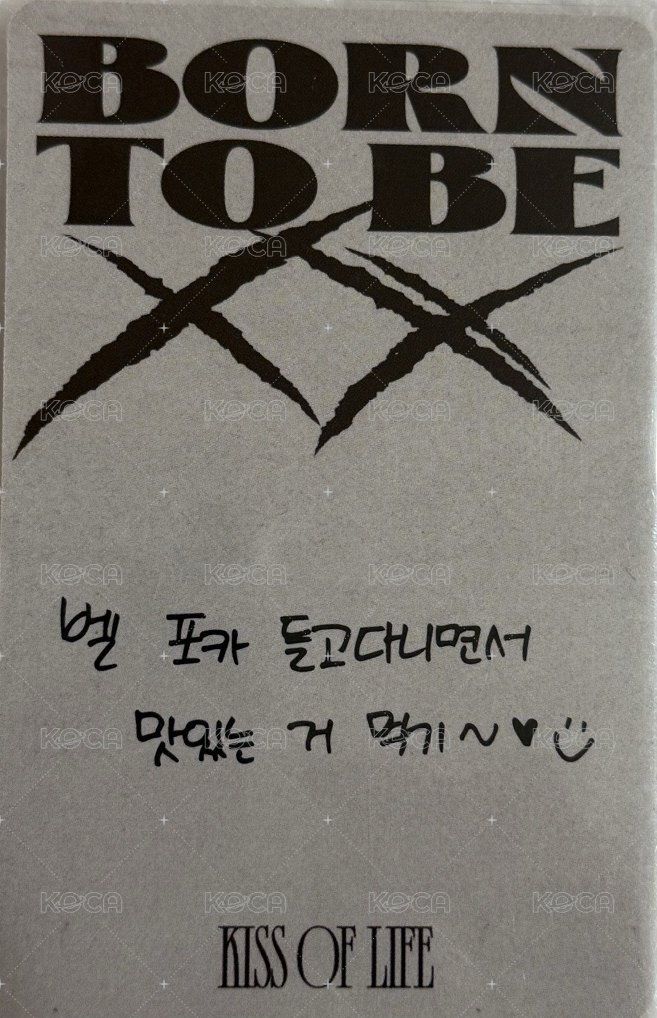 BORN
TO BE
XX
벨 포카 들고다니면서
맛있는 거 먹기~♥
KISS OF LIFE
KOCA